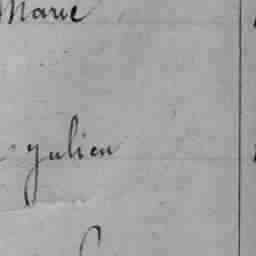 Marie
Julien